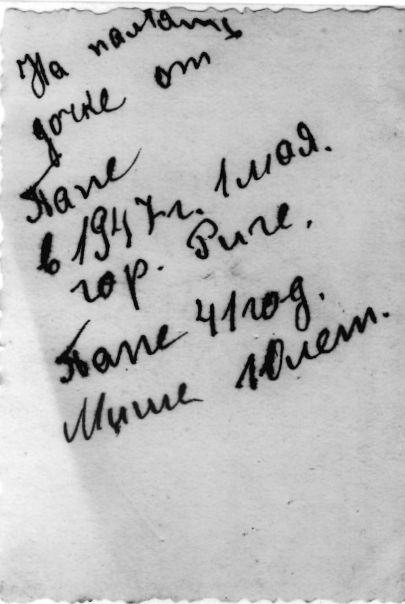 На память
дочке от
Папе
в 1947 г. 1 мая.
гор. Риге.
Папе 41 год.
Мише 10 лет.